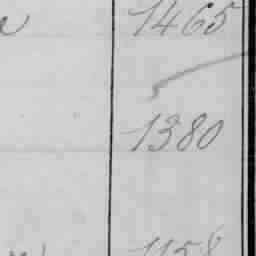 1465
1380
1158